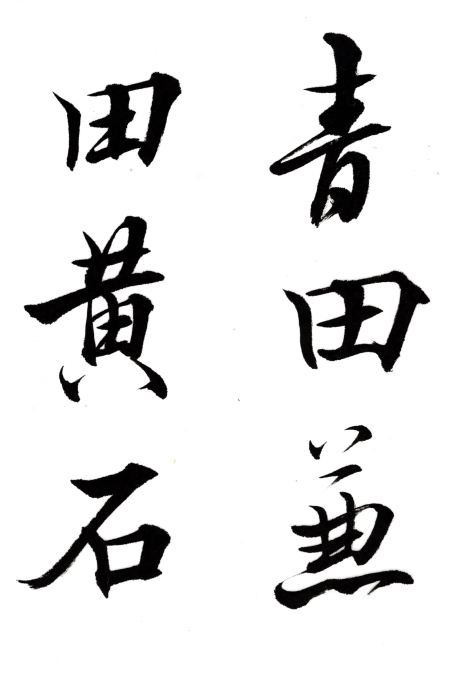 青田兼
田黄石